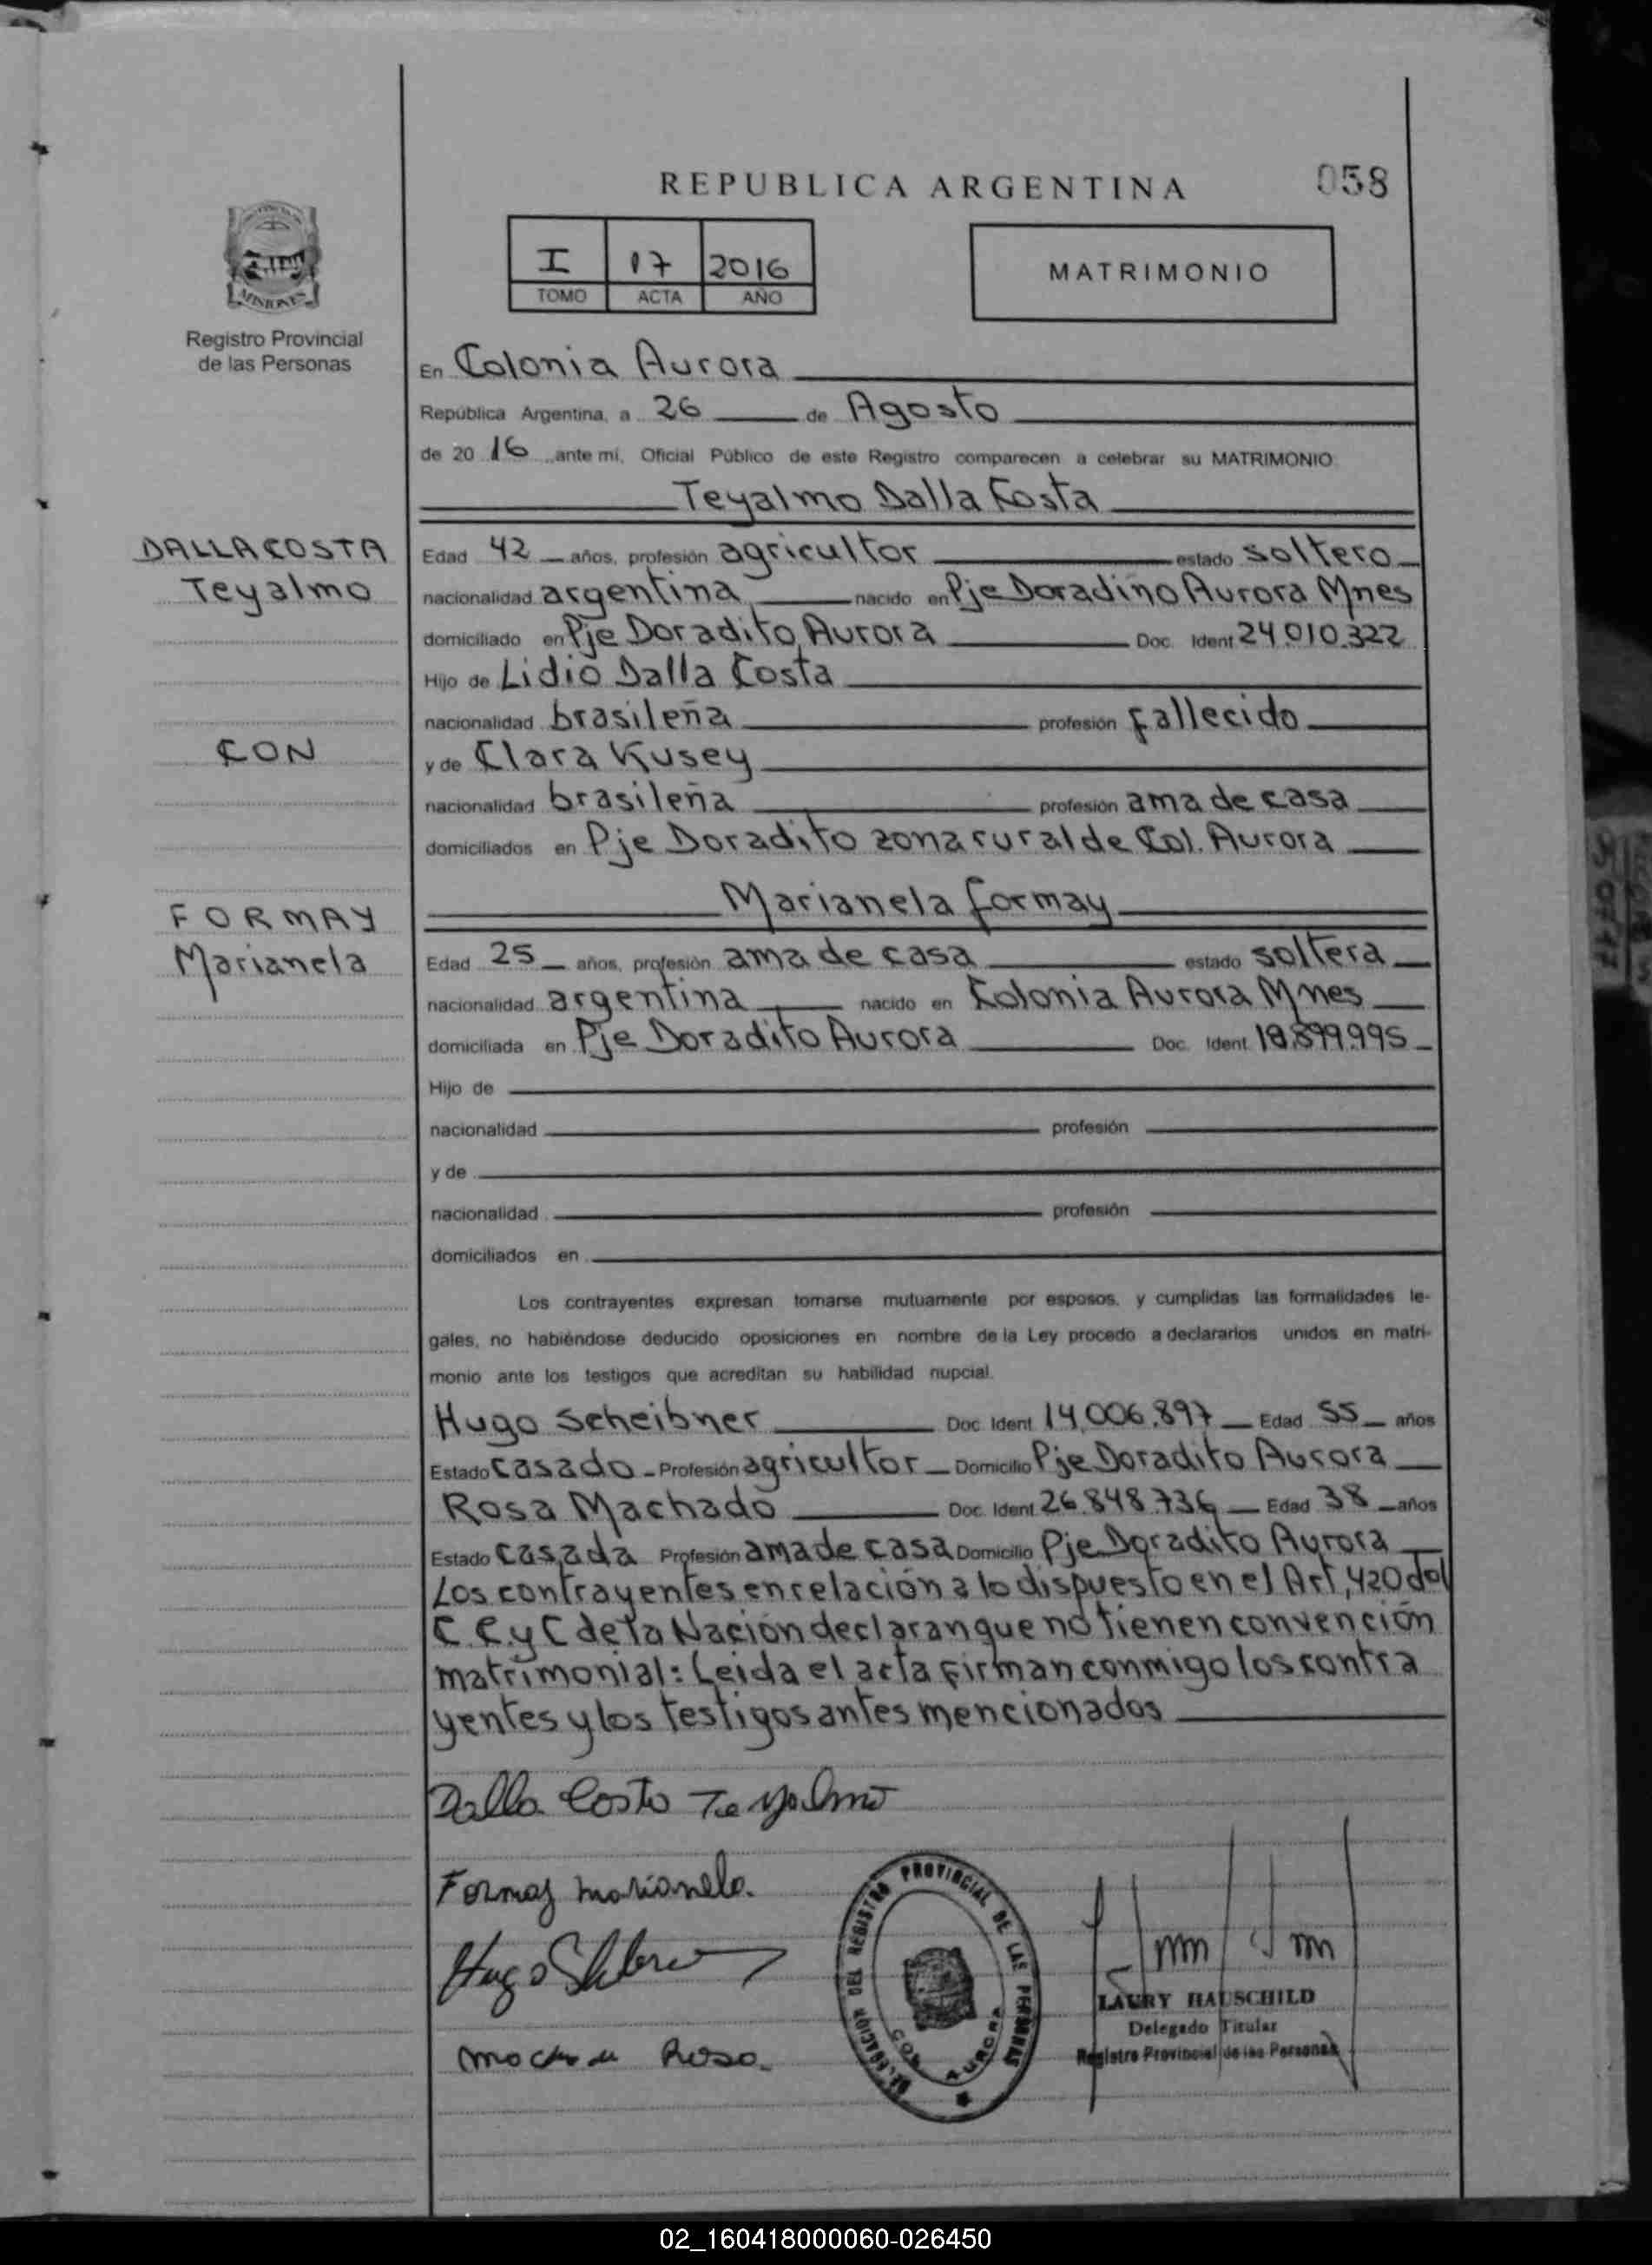 REPUBLICA ARGENTINA
058
I 17 2016
TOMO ACTA AÑO
MATRIMONIO
MISIONES
Registro Provincial
de las Personas
En Colonia Aurora
República Argentina, a 26 de Agosto
de 20 16 ante mí, Oficial Público de este Registro comparecen a celebrar su MATRIMONIO
Teyalmo Dalla Costa
DALLA COSTA
Teyalmo
CON
FORMAY
Marianela
Edad 42 años, profesión agricultor estado soltero
nacionalidad argentina nacido en Pje Doradiño Aurora Mnes
domiciliado en Pje Doradito, Aurora Doc. Ident 24.010.322
Hijo de Lidio Dalla Costa
nacionalidad brasileña profesión fallecido
y de Clara Kusey
nacionalidad brasileña profesión ama de casa
domiciliados en Pje Doradito zona rural de Col. Aurora
Marianela Formay
Edad 25 años, profesión ama de casa estado soltera
nacionalidad argentina nacido en Colonia Aurora Mnes
domiciliada en Pje Doradito Aurora Doc. Ident
Hijo de
nacionalidad profesión
y de
nacionalidad profesión
domiciliados en
Los contrayentes expresan tomarse mutuamente por esposos, y cumplidas las formalidades le-
gales, no habiéndose deducido oposiciones en nombre de la Ley procedo a declararlos unidos en matri-
monio ante los testigos que acreditan su habilidad nupcial.
Hugo Scheibner Doc. Ident 14,006.897 Edad 55 años
Estado casado - Profesión agricultor Domicilio Pje Doradito Aurora
Rosa Machado Doc. Ident 26.848.736 Edad 38 años
Estado casada Profesión ama de casa Domicilio Pje Doradito Aurora
Los contrayentes en relación a lo dispuesto en el Art, 420 del
C.C.y C de la Nación declaran que no tienen convención
matrimonial: Leida el acta firman conmigo los contra
yentes y los testigos antes mencionados
Dalla Costa Teyalmo
Formay Marianela.
Hugo
Rosa.
DELEGACION DEL REGISTRO PROVINCIAL DE LAS PERSONAS
COL. AURORA
LAURY HAUSCHILD
Delegado Titular
Registro Provincial de las Personas
02_160418000060-026450